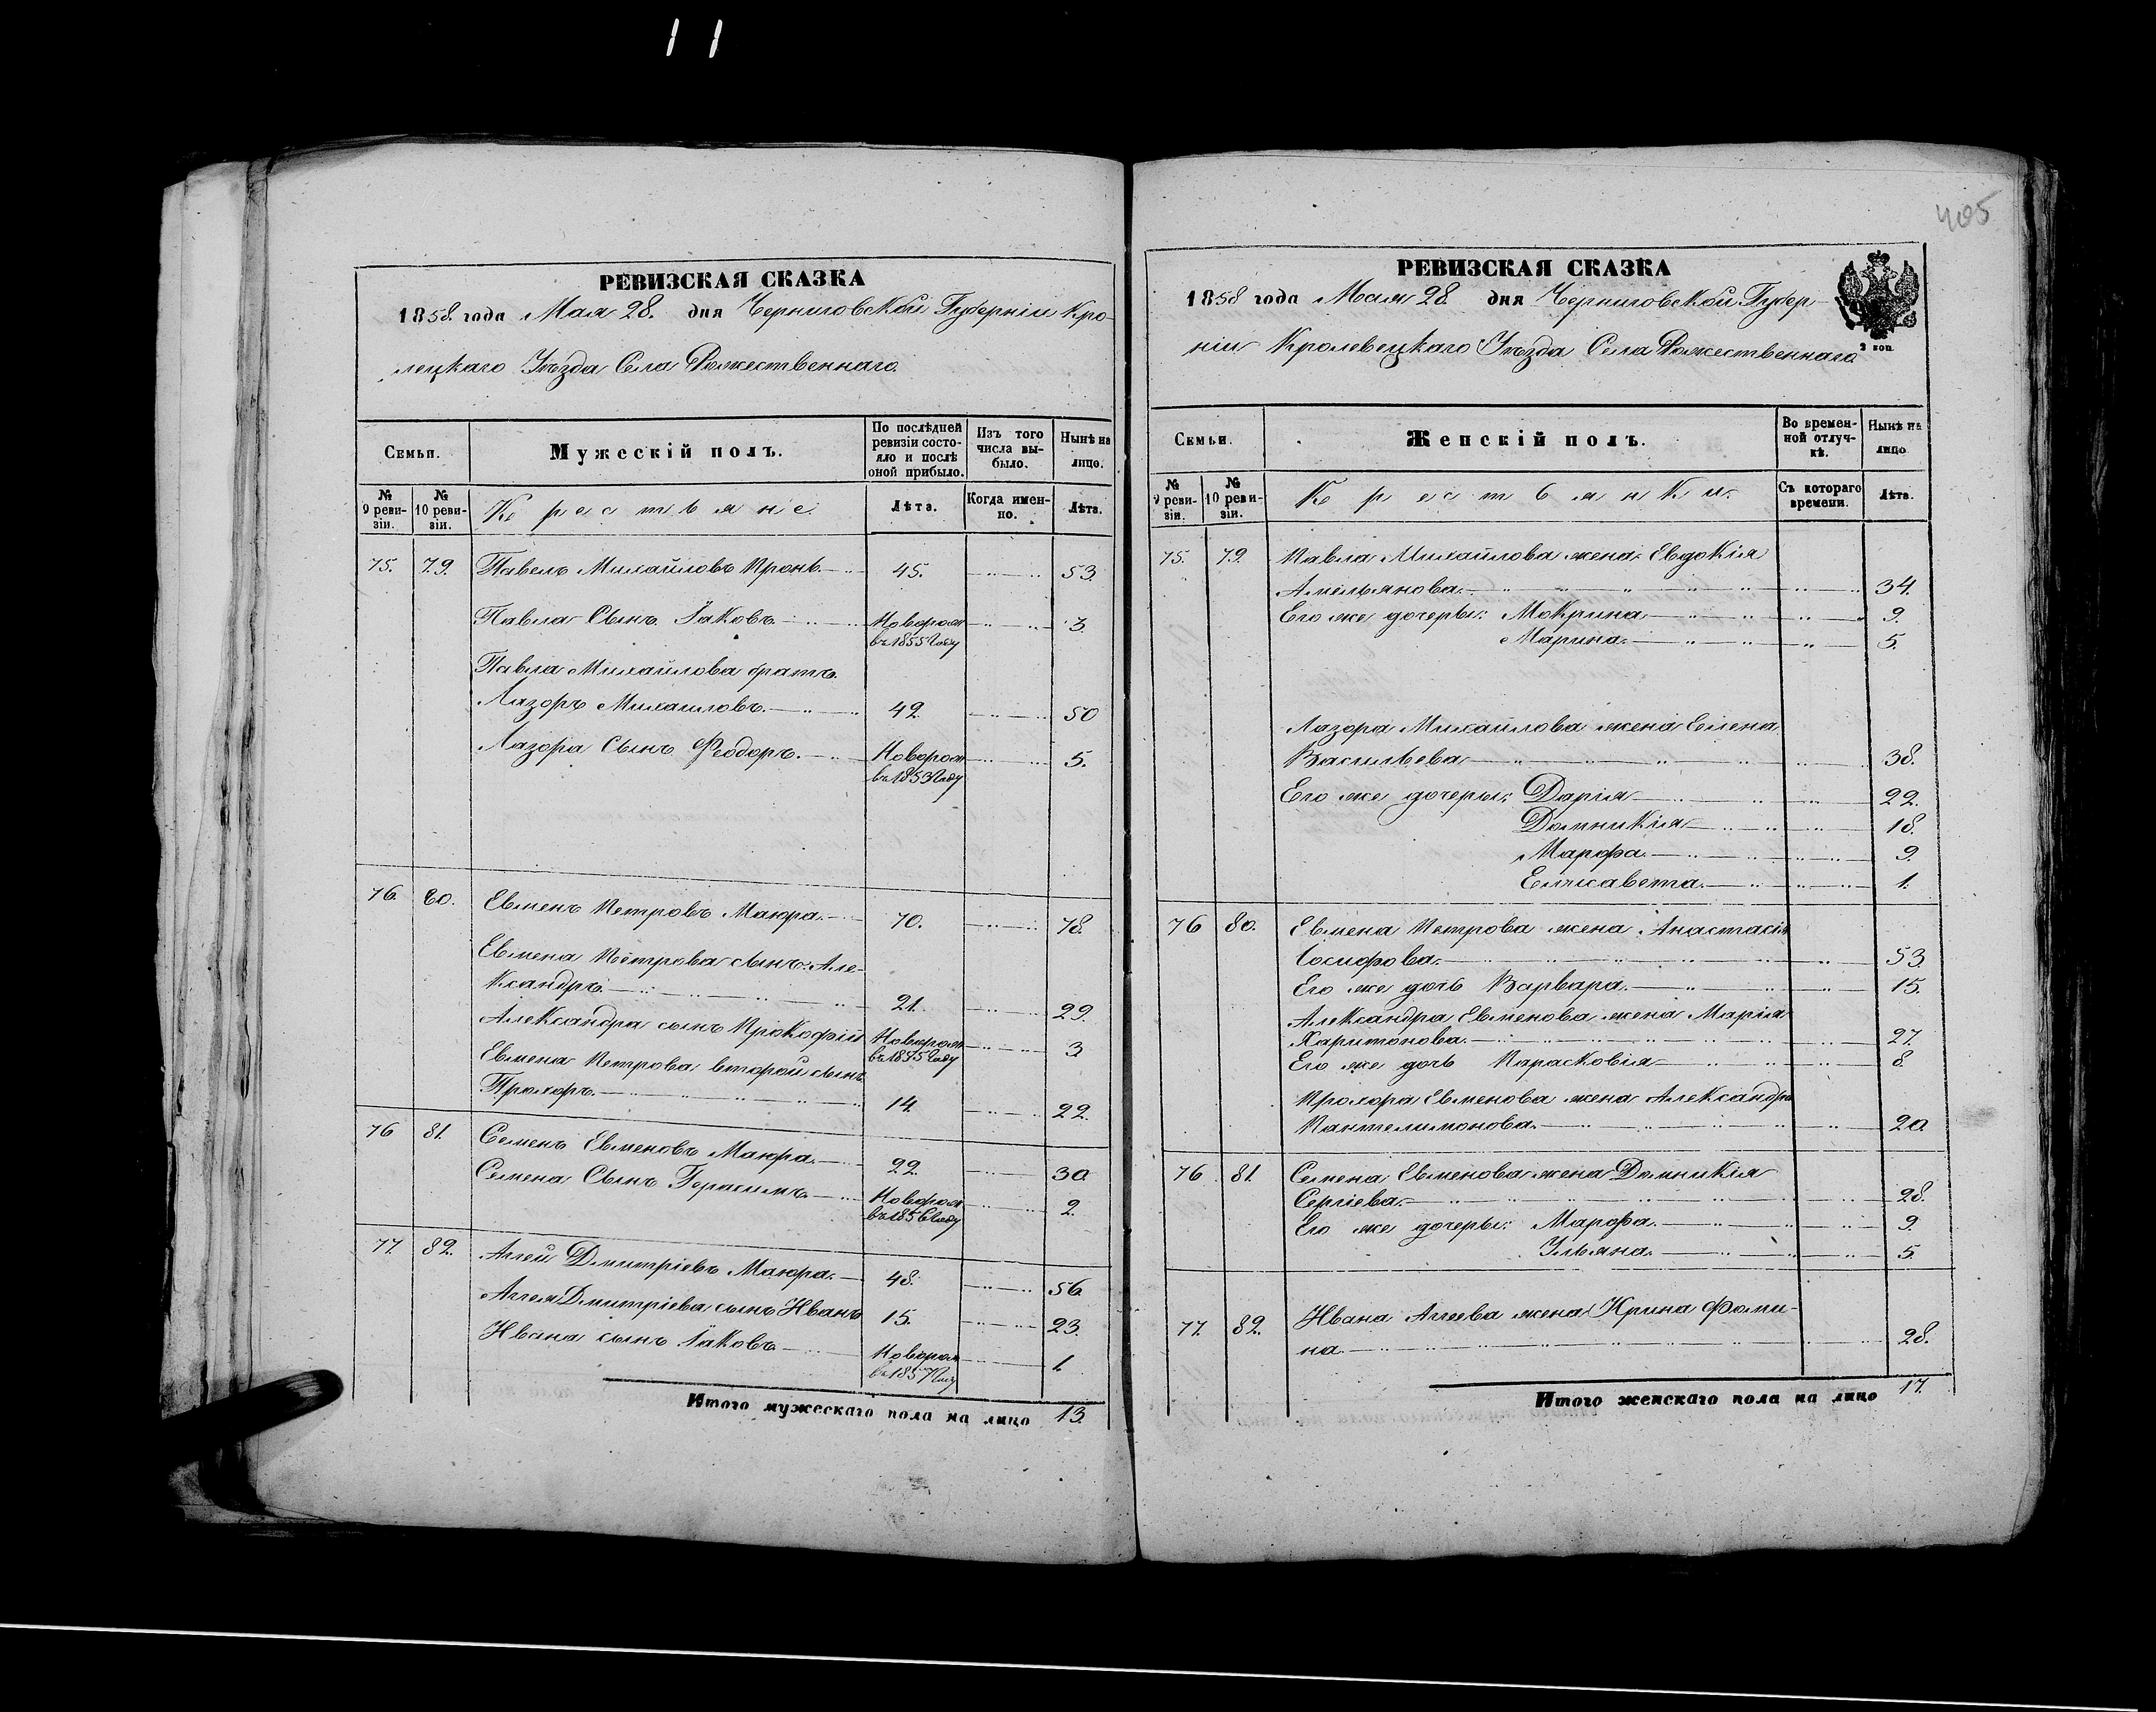 11
405
РЕВИЗСКАЯ СКАЗКА
1858. года Мая 28. дня Черниговской Губерніи Кро-
лецкаго Уѣзда Села Рожественнаго
Семьи.
Мужескій полъ.
По послѣдней ревизіи состояло и послѣ оной прибыло.
Изъ того числа выбыло.
Нынѣ на лицо.
№ 9 ревизіи.
№ 10 ревизіи.
Крестьяне.
Лѣта.
Когда именно.
Лѣта.
75. 79. Павелъ Михайловъ Пронь 45. 53.
Павла Сынъ Іаковъ Новорож 3.
въ 1855 Году
Павла Михайлова братъ
Лазоръ Михаиловъ 42 50
Лазора Сынъ Феодоръ. Новорож 5.
въ 1853 Году
76. 80. Евменъ Петровъ Маюра 70. 78.
Евмена Петрова сынъ: Але-
ксандръ 21. 29.
Александра сынъ Прокофій Новорож 3
въ 1855 Году
Евмена Петрова второй сынъ
Прохоръ 14. 22.
76 81. Семенъ Евменовъ Маюра. 22. 30
Семена Сынъ Герасимъ Новорож 2.
въ 1856 Году
77. 82. Аггей Дмитріевъ Маюра. 48. 56
Аггея Дмитріева сынъ Иванъ 15. 23.
Ивана сынъ Іаковъ Новорож 1.
въ 1857 Году
Итого мужескаго пола на лицо 13.
РЕВИЗСКАЯ СКАЗКА
1858 года Мая 28 дня Черниговской Губер-
ніи Кролевецкаго Уѣзда Села Рожественнаго
3 коп.
Семьи.
Женскій полъ.
Во временной отлучкѣ.
Нынѣ на лицо
№ 9 ревизіи.
№ 10 ревизіи.
Крестьянки.
Съ котораго времени.
Лѣта.
75. 79. Павла Михайлова жена Евдокія
Амельянова 34.
Его же дочеры: Мокрина 9.
Марина. 5.
Лазора Михайлова жена Елена
Васильева 38.
Его же дочеры: Дарія 22.
Домникія 18.
Марфа. 9.
Елисавета. 1.
76 80. Евмена Петрова жена Анастасія
Іосифова. 53
Его же дочь Варвара. 15.
Александра Евменова жена Марія
Харитонова. 27.
Его же дочь Парасковія 8.
Прохора Евменова жена Александра
Пантелимонова. 20
76 81. Семена Евменова жена Домникія
Сергіева. 28.
Его же дочеры: Марфа. 9.
Ульяна. 5.
77. 82. Ивана Аггеева жена Ирина Фоми-
на. 28.
Итого женскаго пола на лицо 17.